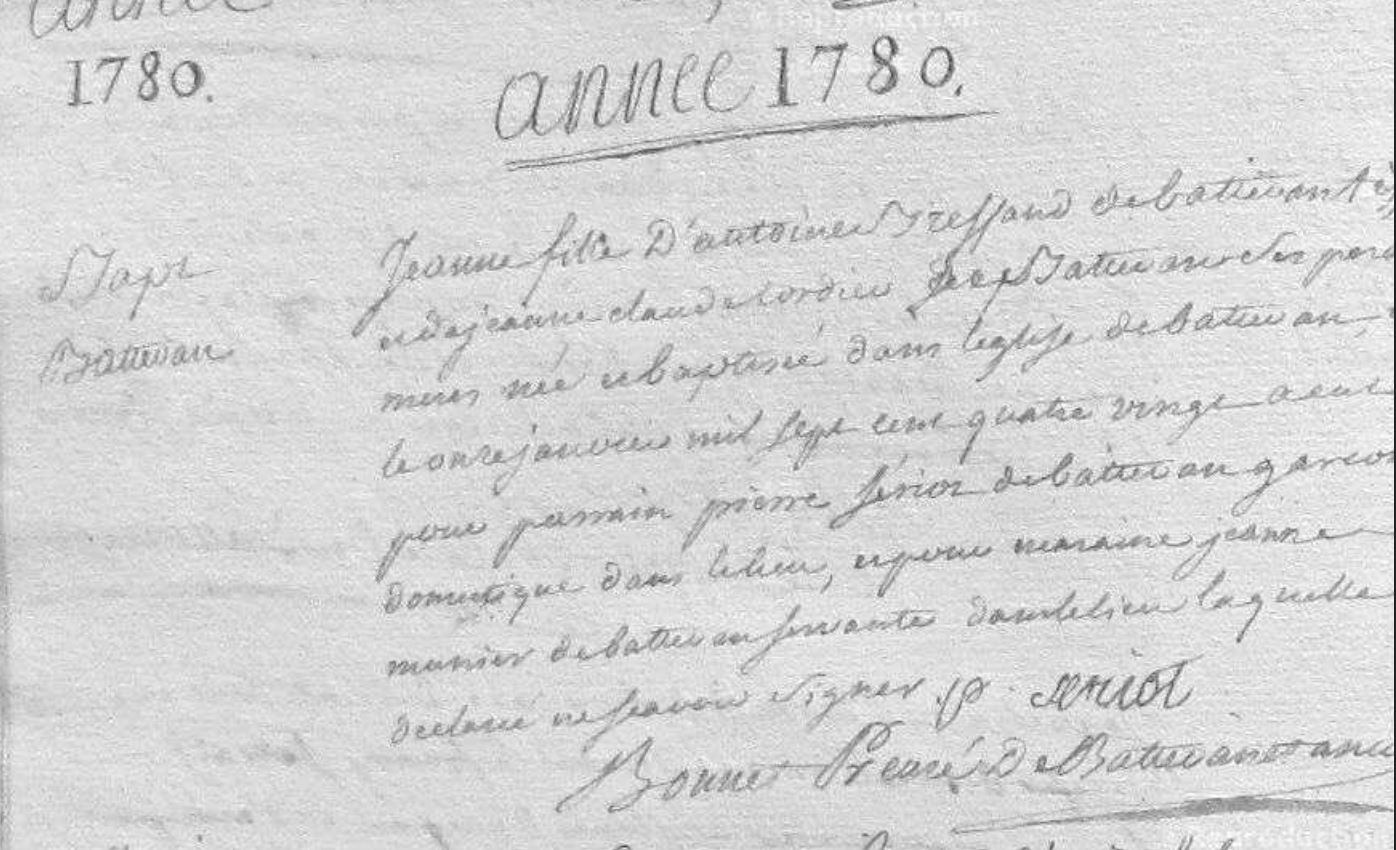 année
1780.
année 1780.
Bapt
Battevan
Jeanne fille D'antoine Treffand de battevant
et de jeanne claude cordier de Battevant ses pere
mere née et baptisée dans leglise de battevan
le onze janvier mil sept cent quatre vingt a eut
pour parrain pierre sériot de battevan garcon
domestique dans le lieu, et pour maraine jeanne
munier de battevan servante dans le lieu laquelle
declaré ne scavoir signer p. seriot
Bonnet P. curé De Battevant